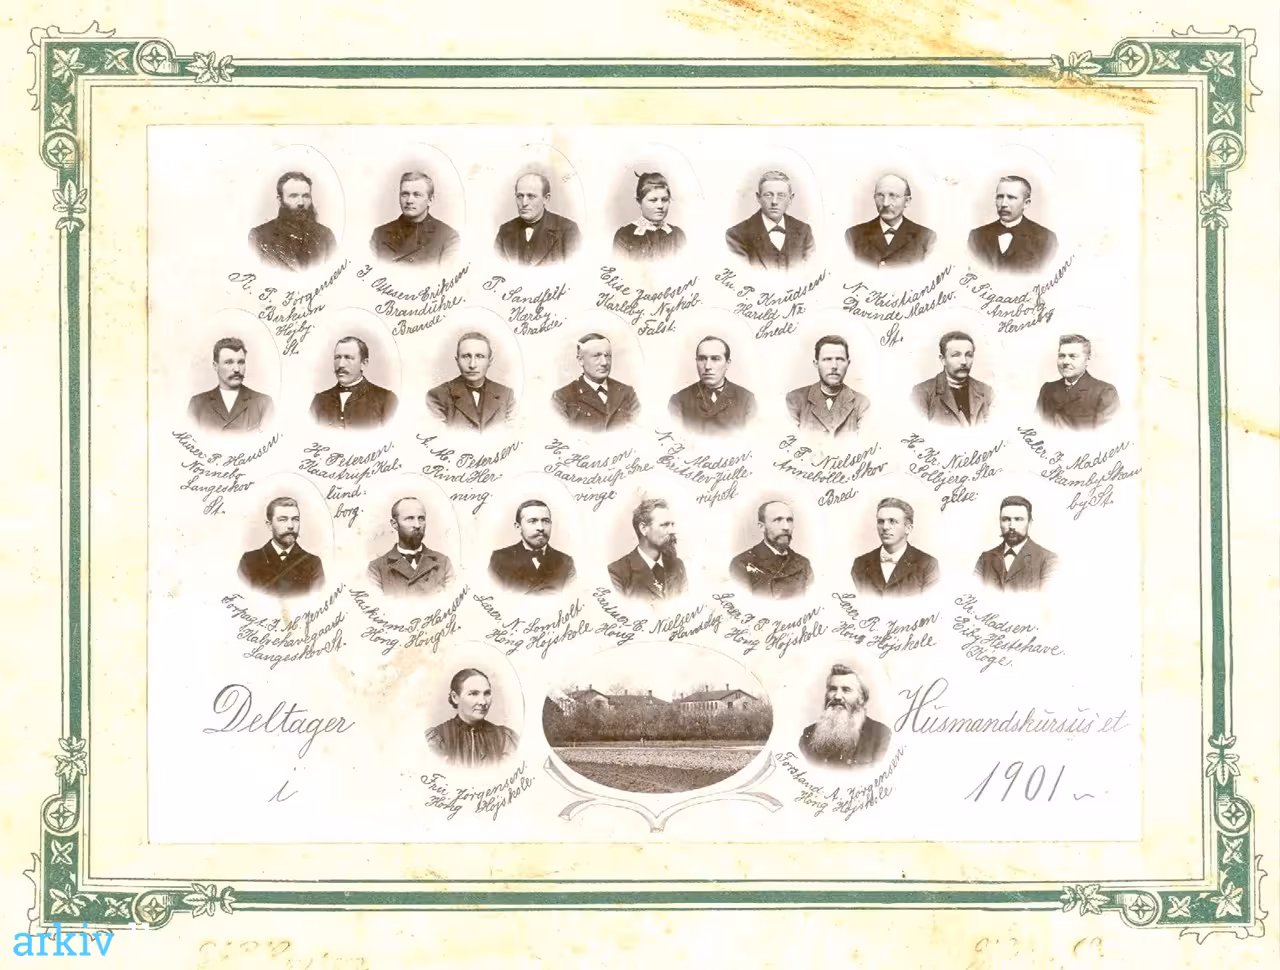 R. P. Jørgensen.
Birkum
Højby
St.
J. Ottesen Eriksen
Brandühre.
Brande.
P. Sandfelt
Karby
Brande.
Elise Jacobsen
Karleby Nykøb.
Falst.
Kn. P. Knudsen
Harild Nr.
Snede
N. Kristiansen
Davinde Marslev.
St.
P. Sigaard Jensen
Arnborg
Herning
Mürer P. Hansen.
Nonnebo
Langeskov
St.
H. Petersen
Kaastrup Kal-
lünd-
borg.
A. M. Petersen.
Rind Her-
ning.
H. Hansen
Taarndrup Gre
vinge
N. J. Madsen.
Jülle-
rup St.
J. P. Nielsen
Annebolle. Skov
Bred.
H. Kr. Nielsen
Solbjerg. Sla
gelse
Maler J. Madsen.
Skamby Skam
by St.
Forpagt. J. M. Jensen
Kalvehavegaard
Langeskov St.
Maskinm. P. Hansen.
Høng. Høng St.
Lærer N. Lomholt.
Høng Højskole
E. Nielsen
Høng
Lærer J. P. Jensen.
Høng Højskole
Lærer R. Jensen
Høng Højskole
Kr. Madsen.
Ejby Hestehave.
Køge.
Deltager
i
Husmandskürsüs'et
1901
Frü Jørgensen.
Høng Højskole.
Forstand. A. Jørgensen
Høng Højskole
arkiv